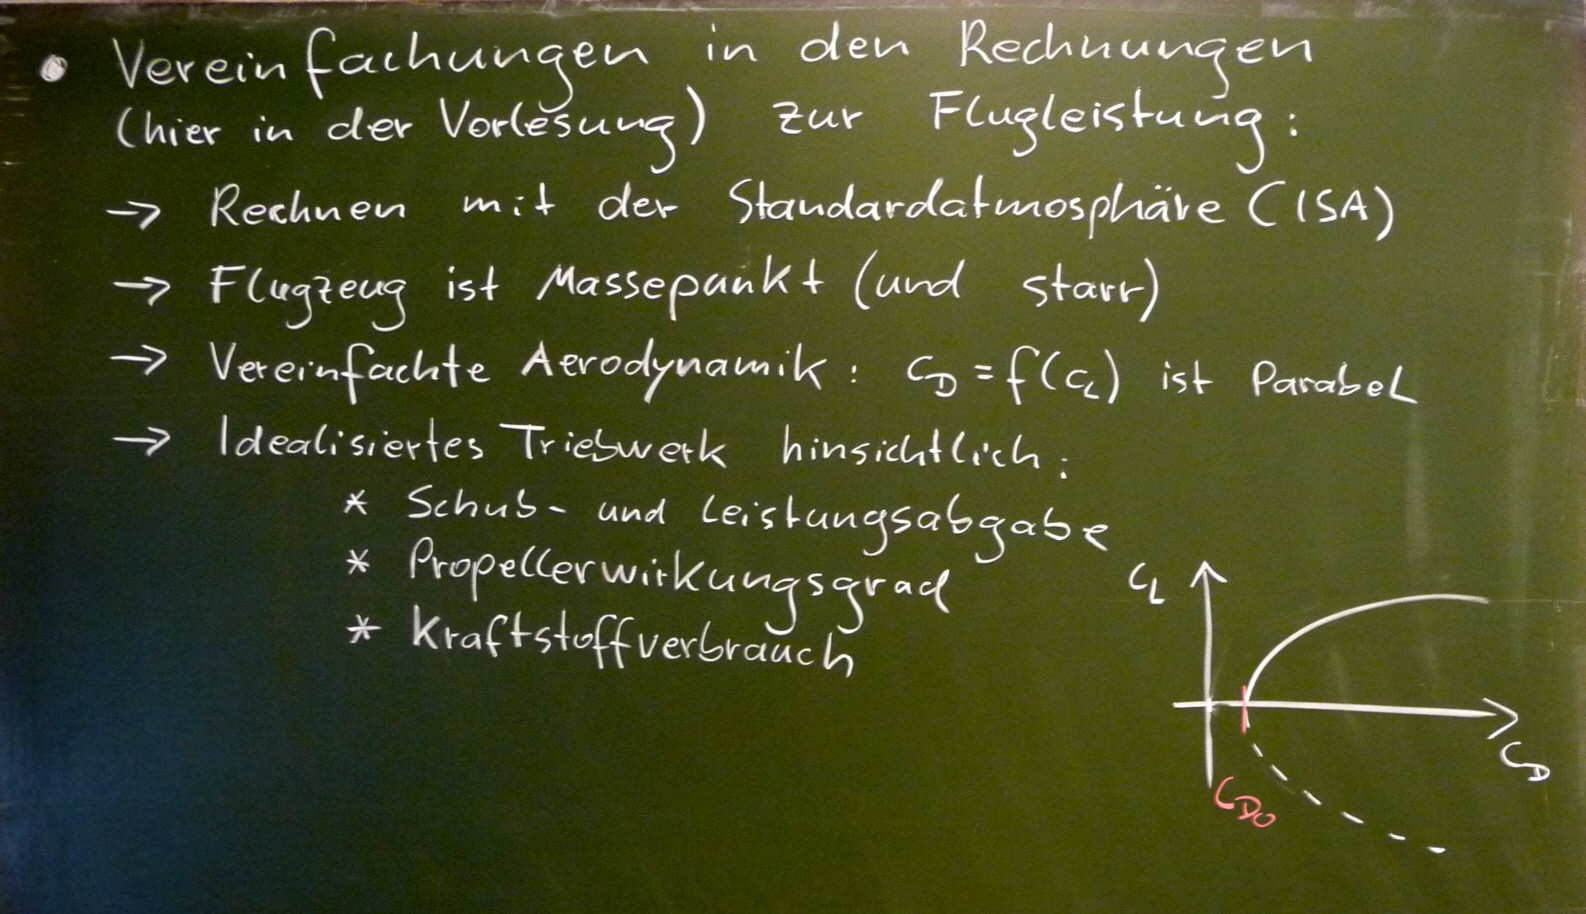 • Vereinfachungen in den Rechnungen
(hier in der Vorlesung) zur Flugleistung:
→ Rechnen mit der Standardatmosphäre (ISA)
→ Flugzeug ist Massepunkt (und starr)
→ Vereinfachte Aerodynamik: C_D = f(C_L) ist Parabel
→ Idealisiertes Triebwerk hinsichtlich:
* Schub- und Leistungsabgabe
* Propellerwirkungsgrad
* Kraftstoffverbrauch
C_L
C_D
C_D0